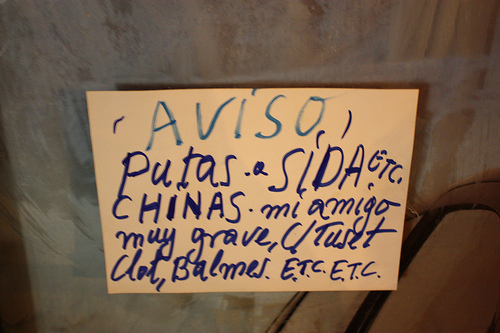 AVISO
Putas. a SIDA ETC.
CHINAS. mi amigo
muy grave, C/Tuset
Clot, Balmes. ETC. ETC.